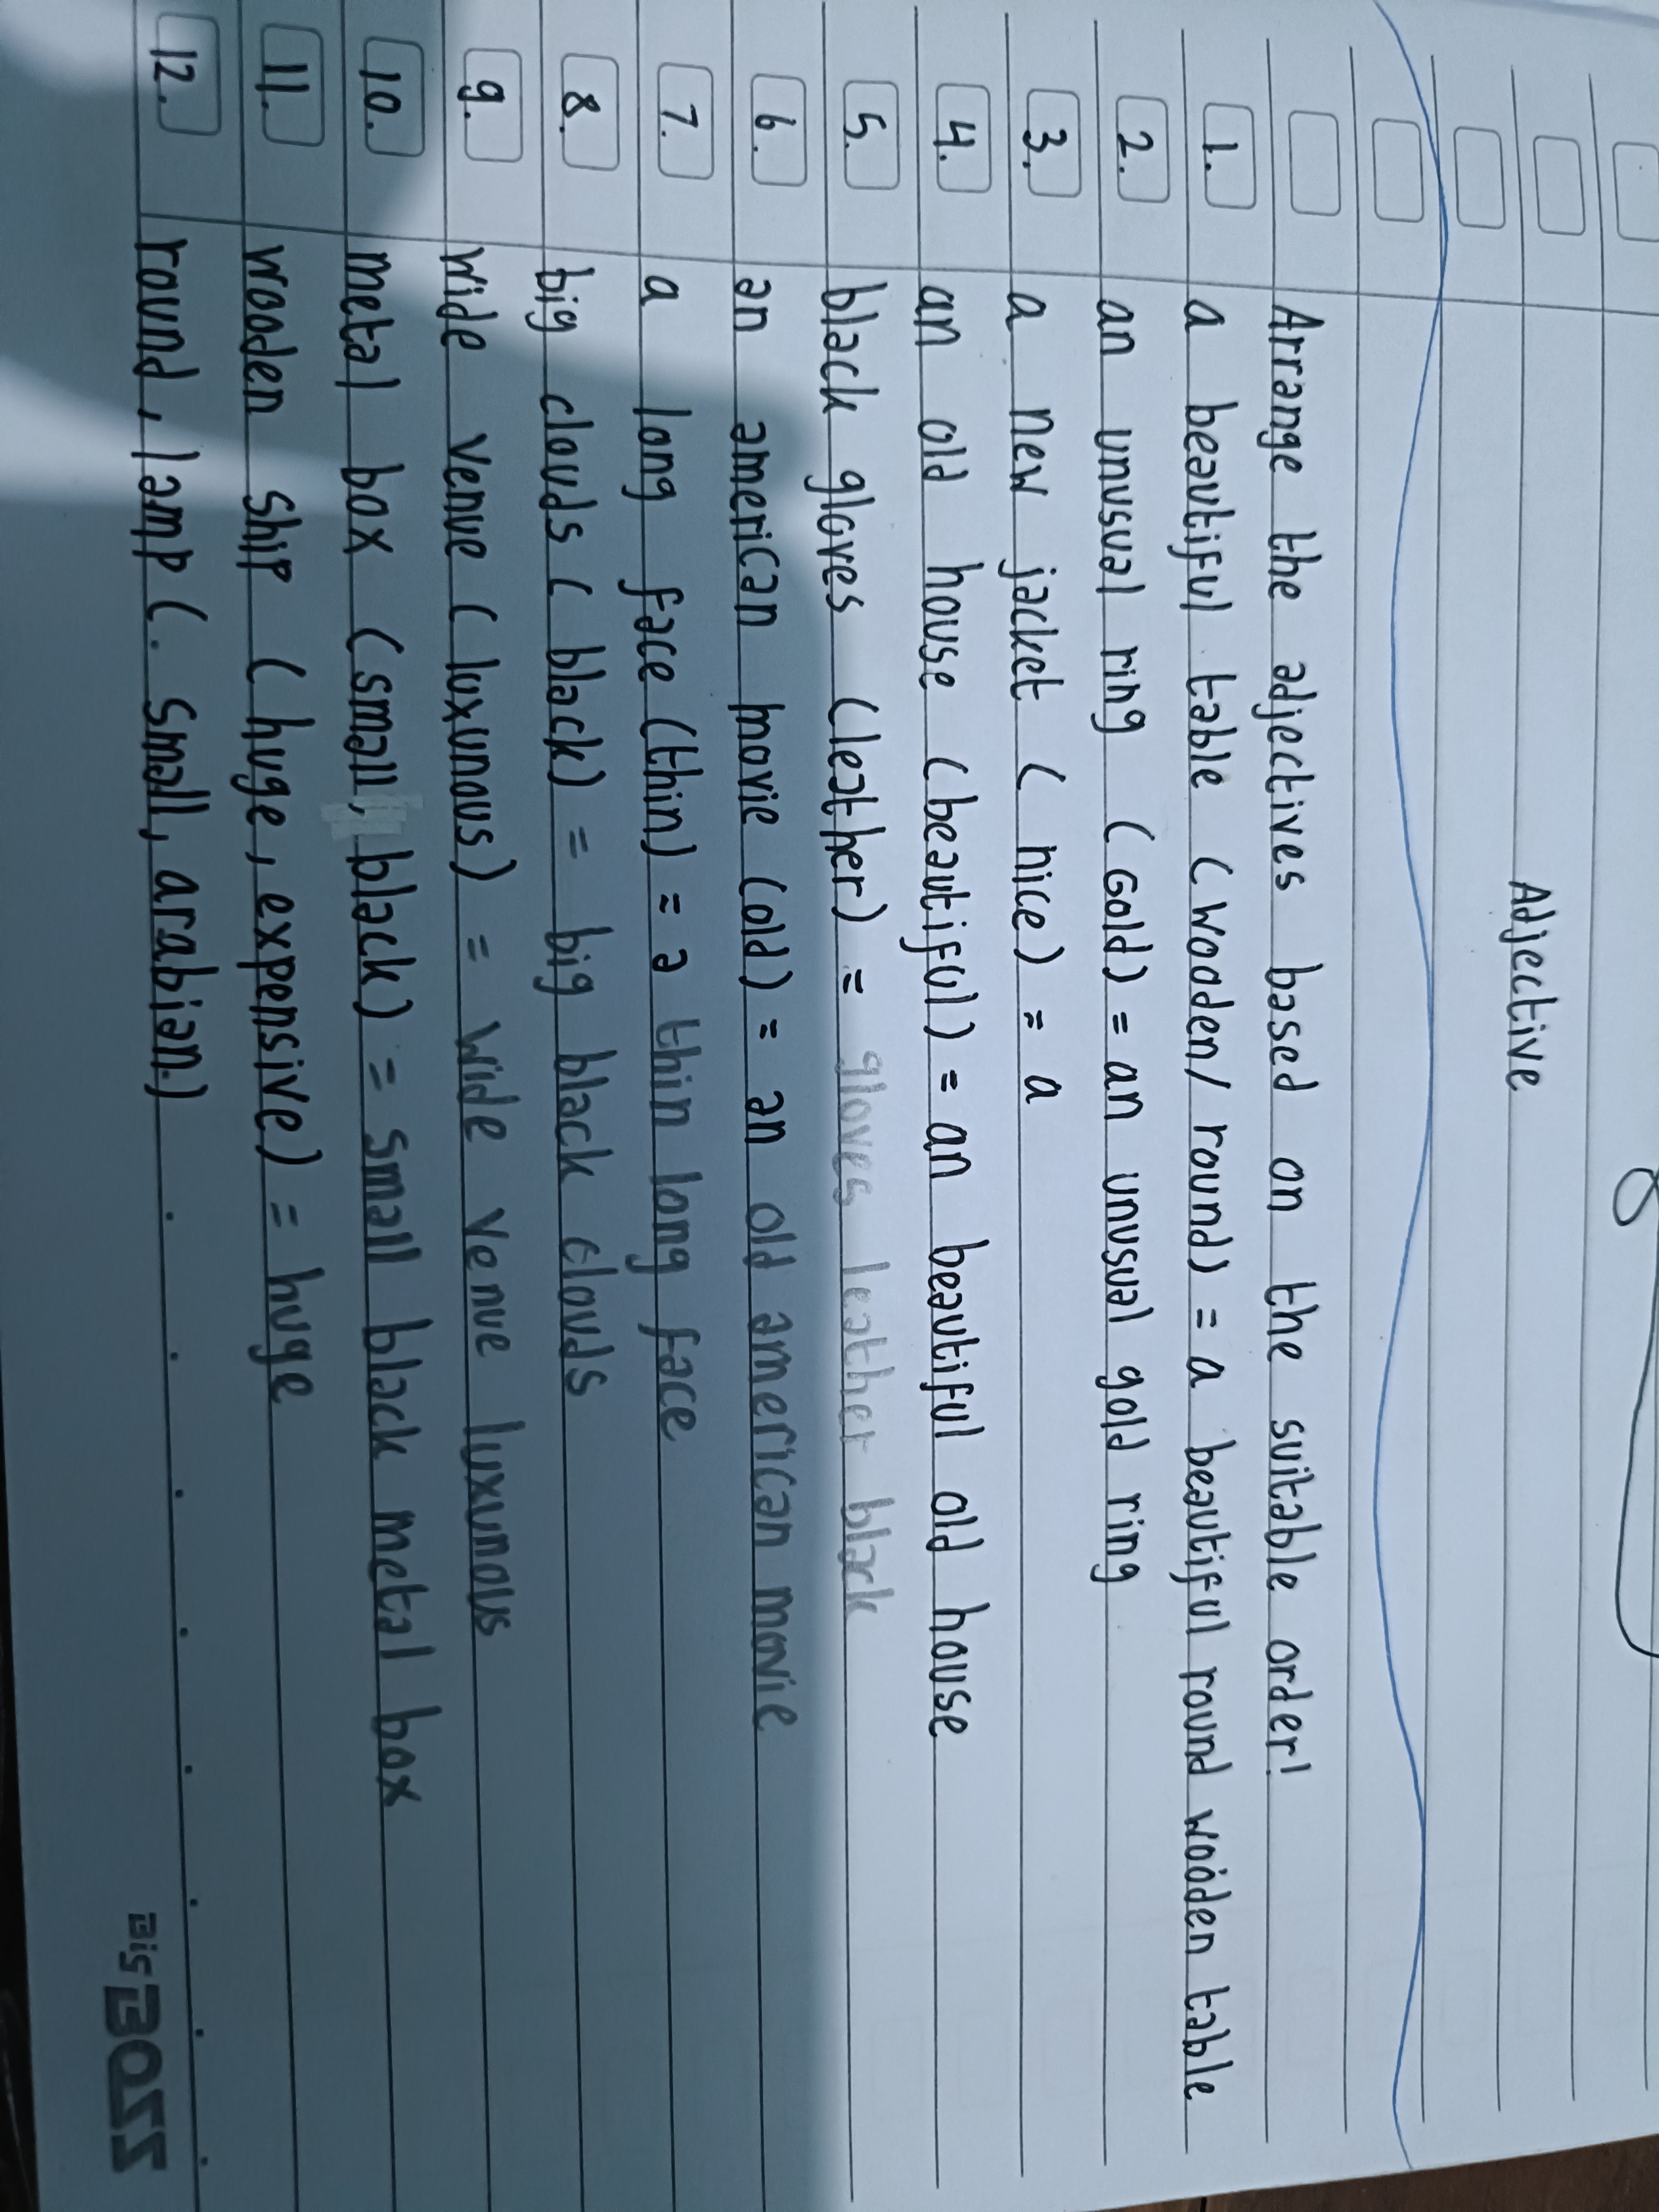 Adjective
Arrange the adjectives based on the suitable order!
1. a beautiful table (wooden/round) = a beautiful round wooden table
2. an unusual ring (Gold) = an unusual gold ring
3. a new jacket ( nice) = a
4. an old house (beautiful) = an beautiful old house
5. black gloves (leather) = gloves leather black
6. an american movie (old) = an old american movie
7. a long face (thin) = a thin long face
8. big clouds ( black) = big black clouds
9. Wide venue ( luxunous) = Wide Venue luxunous
10. metal box (small, black) = small black metal box
11. wooden ship ( huge, expensive) = huge
12. round, lamp (. small, arabian.)
Big BOSS